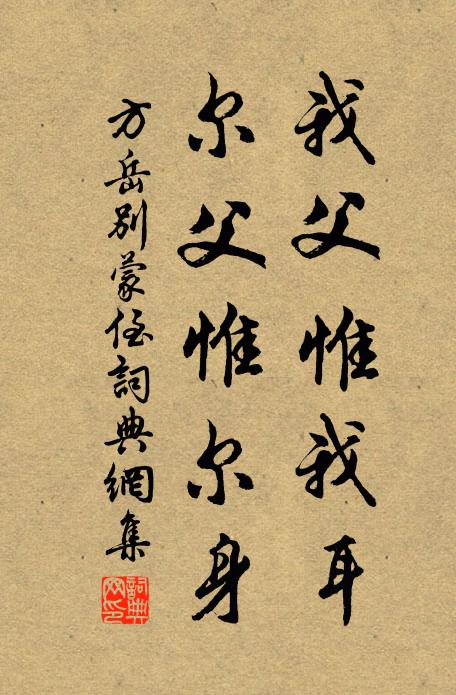 我父惟我耳
尔父惟尔身
方岳別蒙侄詞典網集
詞典网印